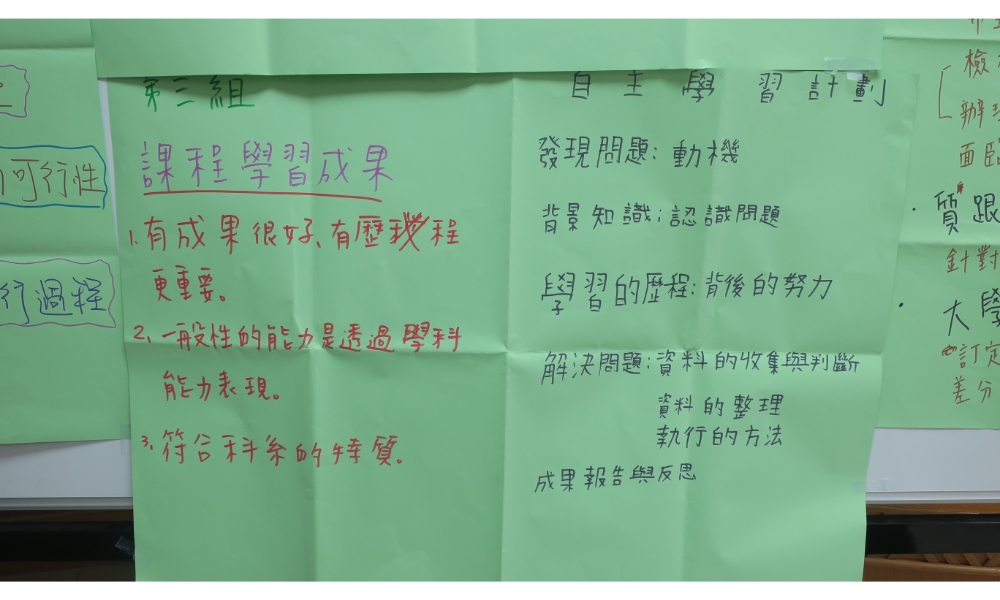 第三組
課程學習成果
1. 有成果很好、有歷程
更重要。
2. 一般性的能力是透過學科
能力表現。
3. 符合科系的特質。
自主學習計劃
發現問題:動機
背景知識:認識問題
學習的歷程:背後的努力
解決問題:資料的收集與判斷
資料的整理
執行的方法
成果報告與反思
可行性
行過程
檢
辦理
面臨
質 跟
針對
大學
訂定
差分